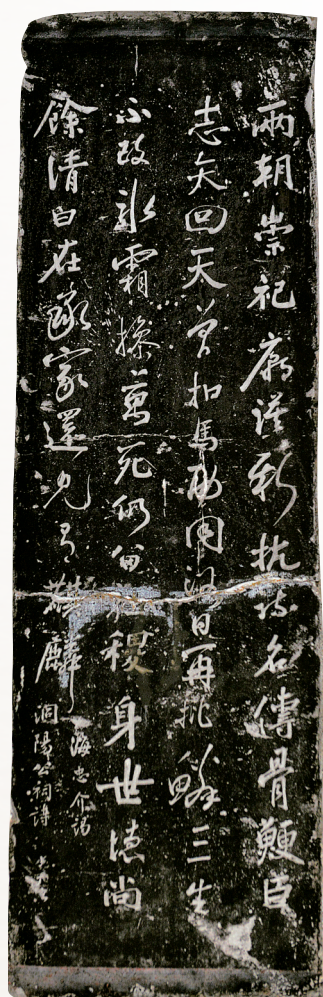 兩朝崇祀廟謨新抗疏名傳骨鯁臣
志矢回天曾扣馬功同浴日再批鱗三生
不改氷霜操萬死仍留稷身世德尚
餘清白在承家還見有麒麟
海忠介謁
洞陽公祠詩